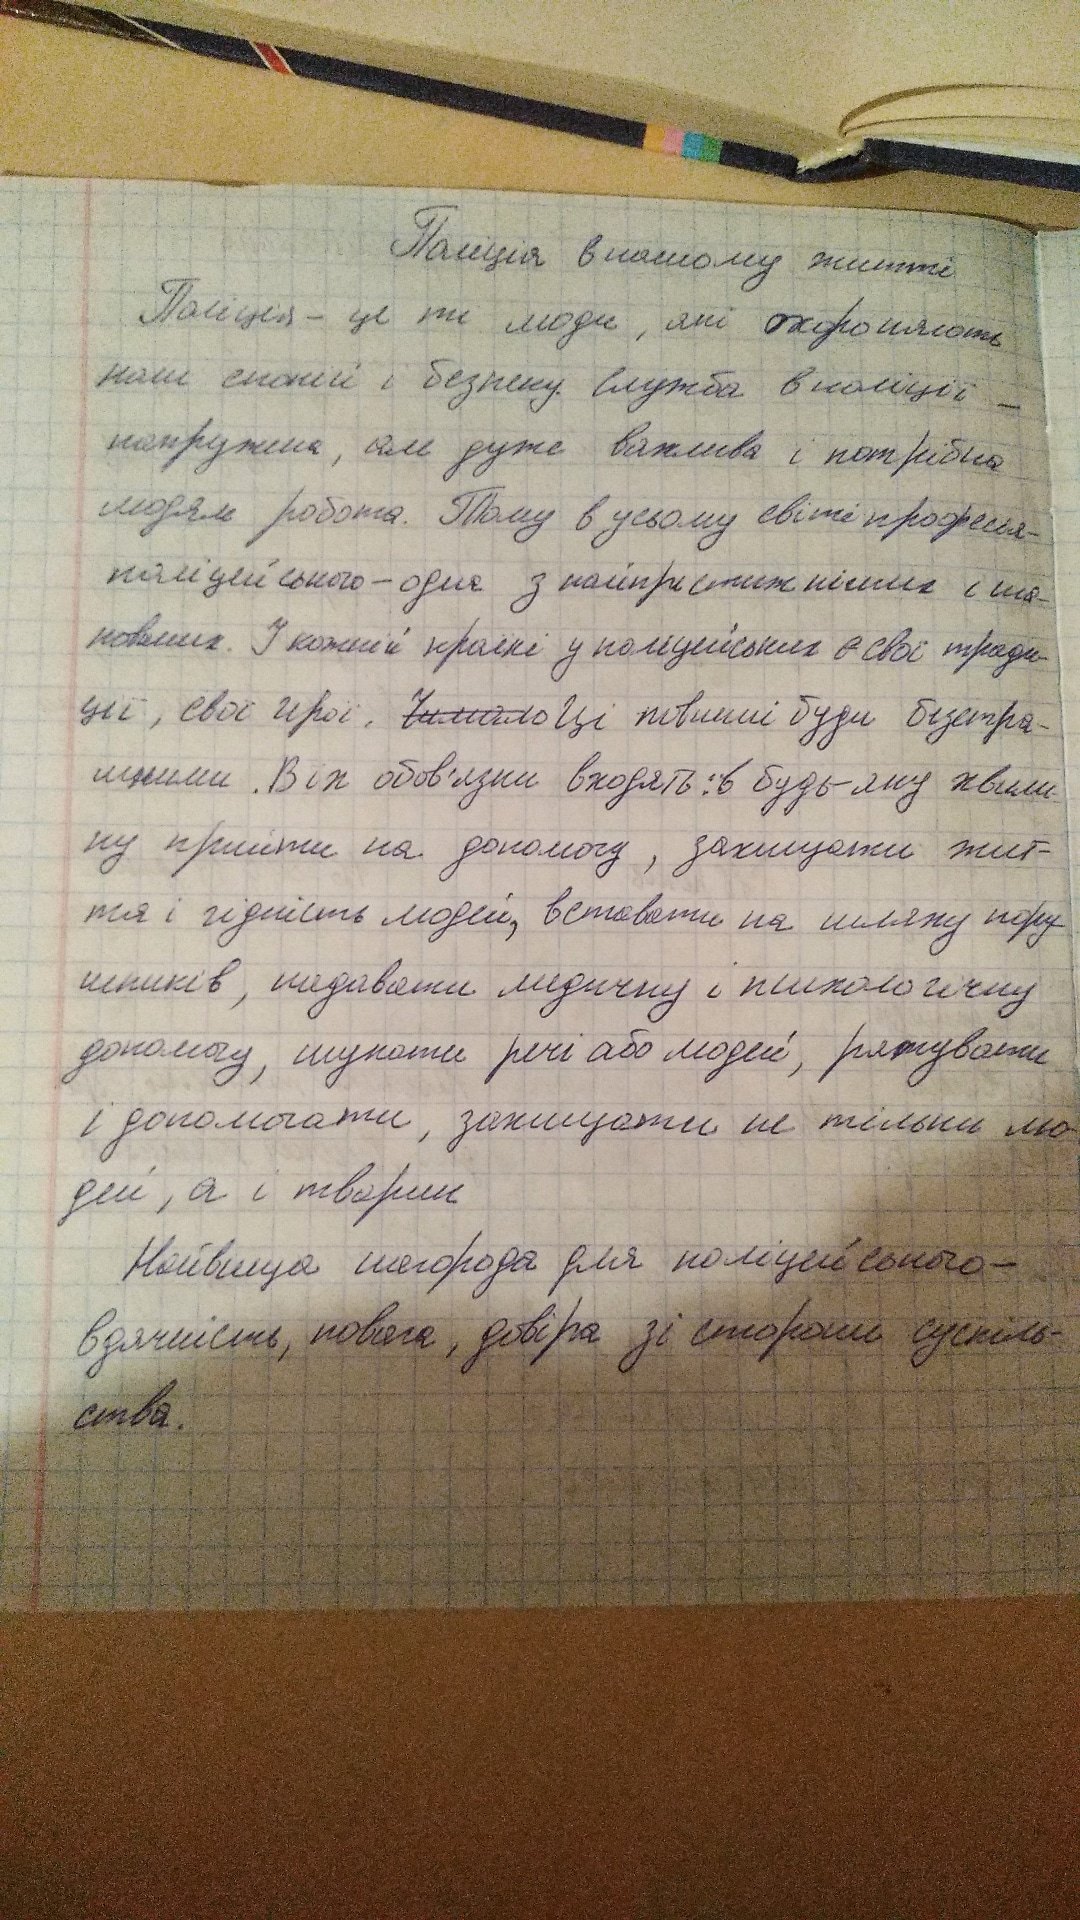 Поліція в нашому житті
Поліція – це ті люди, які охороняють
наш спокій і безпеку. Служба в поліції –
напружена, але дуже важлива і потрібна
людям робота. Тому в усьому світі професія
поліцейського – одна з найпрестижніших і ша-
нованих. У кожній країні у поліцейських є свої тради-
ції, свої герої. Ці повинні буди безстра-
шними. В їх обов'язки входять: в будь-яку хвили-
ну прийти на допомогу, захищати жит-
тя і гідність людей, вставати на шляху пору
шників, надавати медичну і психологічну
допомогу, шукати речі або людей, рятувати
і допомагати, захищати не тільки лю-
дей, а і тварин
Найвища нагорода для поліцейського –
вдячність, повага, довіра зі сторони суспіль-
ства.